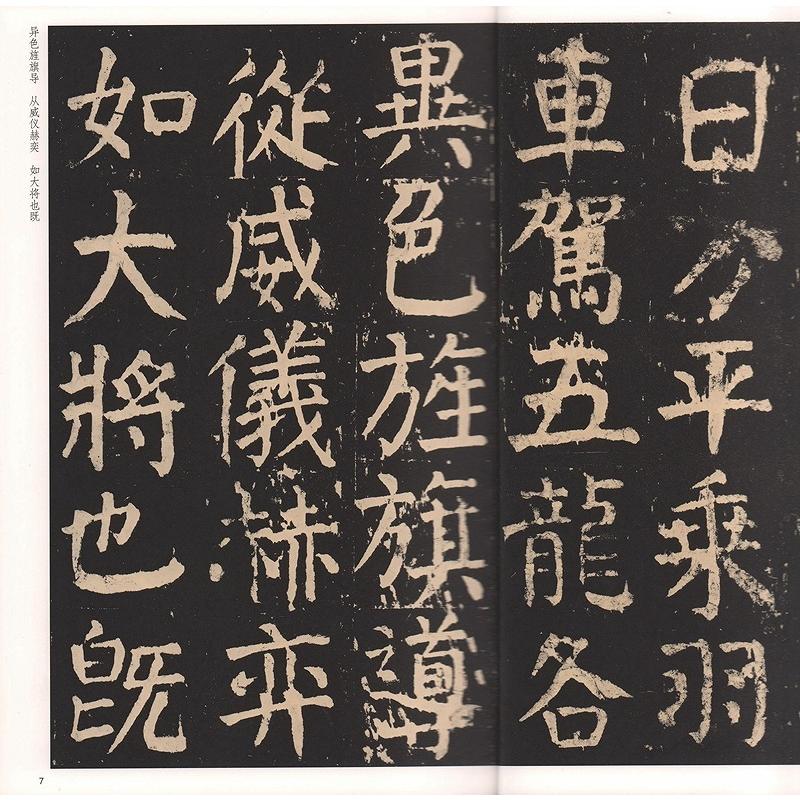 日方平乘羽
車駕五龍各
異色旌旗導
從威儀赫弈
如大將也既
异色旌旗导 从威仪赫奕 如大将也既
7